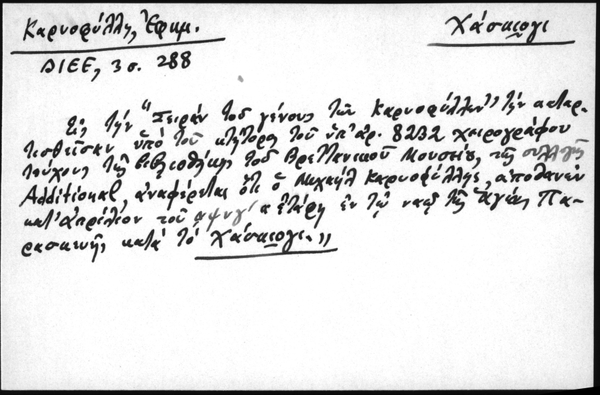 Καρυοφύλλη, Ἐφημ.
Χάσκιογι
ΔΙΕΕ, 3 σ. 288
Εἰς τὴν "Σειρὰν τοῦ γένους τῶν Καρυοφύλλων" τὴν καταρ-
τισθεῖσαν ὑπὸ τοῦ κτήτορος τοῦ ὑπ' ἀρ. 8232 χειρογράφου
τεύχους τῆς βιβλιοθήκης τοῦ Βρεττανικοῦ Μουσείου, τῆς συλλογῆς
Additional, ἀναφέρεται ὅτι ὁ Μιχαὴλ Καρυοφύλλης, ἀποθανὼν
κατ' Ἀπρίλιον τοῦ αψνγ' ἐτάφη ἐν τῷ ναῷ τῆς Ἁγίας Πα-
ρασκευῆς κατὰ τὸ Χάσκιογι."